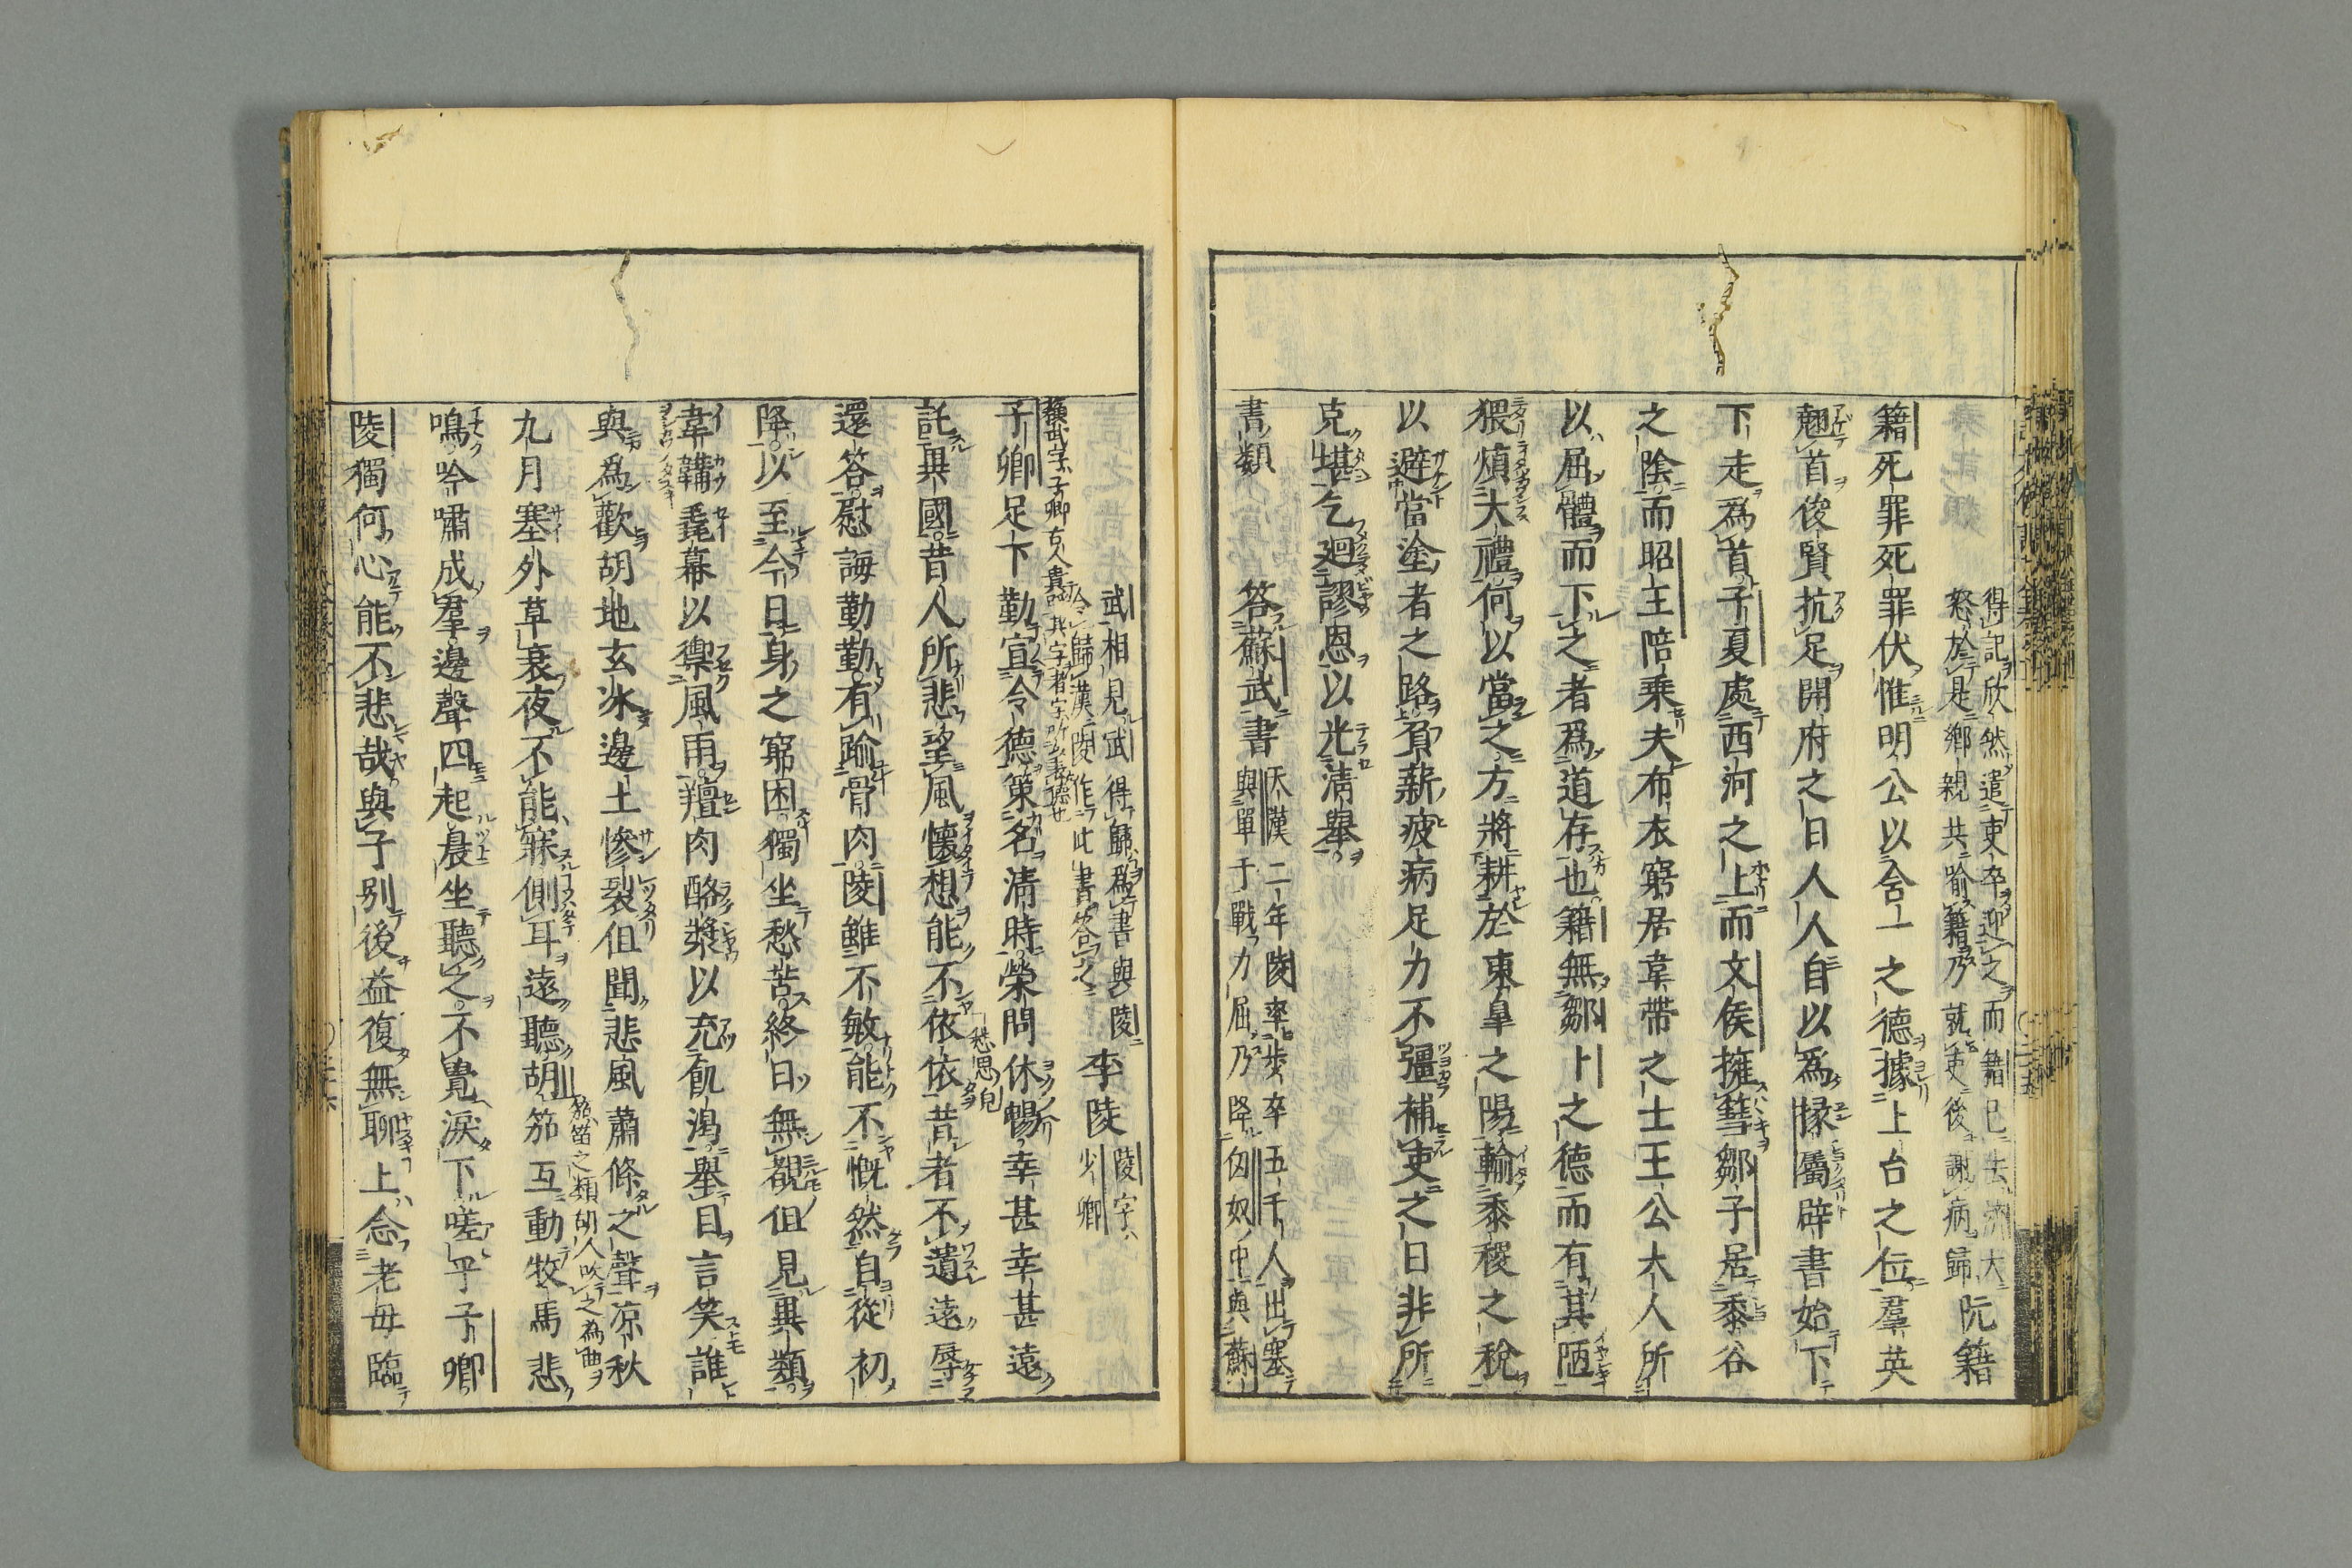 得記欣然遣吏卒迎之而籍已去濟大
怒於是鄉親共喻籍乃就吏後謝病歸 阮籍
籍死罪死罪伏惟明公以含一之德據上台之位羣英
翹首俊賢抗足開府之日人人自以為掾屬辟書始下
下走為首子夏處西河之上而文侯擁篲鄒子居黍谷
之陰而昭王陪乗夫布衣窮居韋帶之士王公大人所
以屈體而下之者為道存也籍無鄒卜之德而有其陋
猥煩大禮何以當之方將耕於東臯之陽輸黍稷之稅
以避當塗者之路負薪疲病足力不彊補吏之日非所
克堪乞廻謬恩以光清舉
書類 答蘇武書 天漢二年陵率步卒五千人出塞
與單于戰力屈乃降匈奴中與蘇
武相見武得歸為書與陵
令歸漢陵作此書答之 李陵 陵字
少卿
蘇武字子卿古人貴
子卿足下勤宣令德策名清時榮問休暢幸甚幸甚遠
託異國昔人所悲望風懷想能不依依昔者不遺遠辱
愁思皃
還答慰誨勤勤有踰骨肉陵雖不敏能不慨然自從初
降以至今日身之窮困獨坐愁苦終日無覩但見異類
韋韝毳幕以禦風雨羶肉酪漿以充飢渴舉目言笑誰
與為歡胡地玄冰邊土慘裂但聞悲風蕭條之聲凉秋
九月塞外草衰夜不能寐側耳遠聽胡笳互動牧馬悲
笳笛之類胡人吹之為曲
鳴吟嘯成羣邊聲四起晨坐聽之不覺淚下嗟乎子卿
陵獨何心能不悲哉與子别後益復無聊上念老母臨